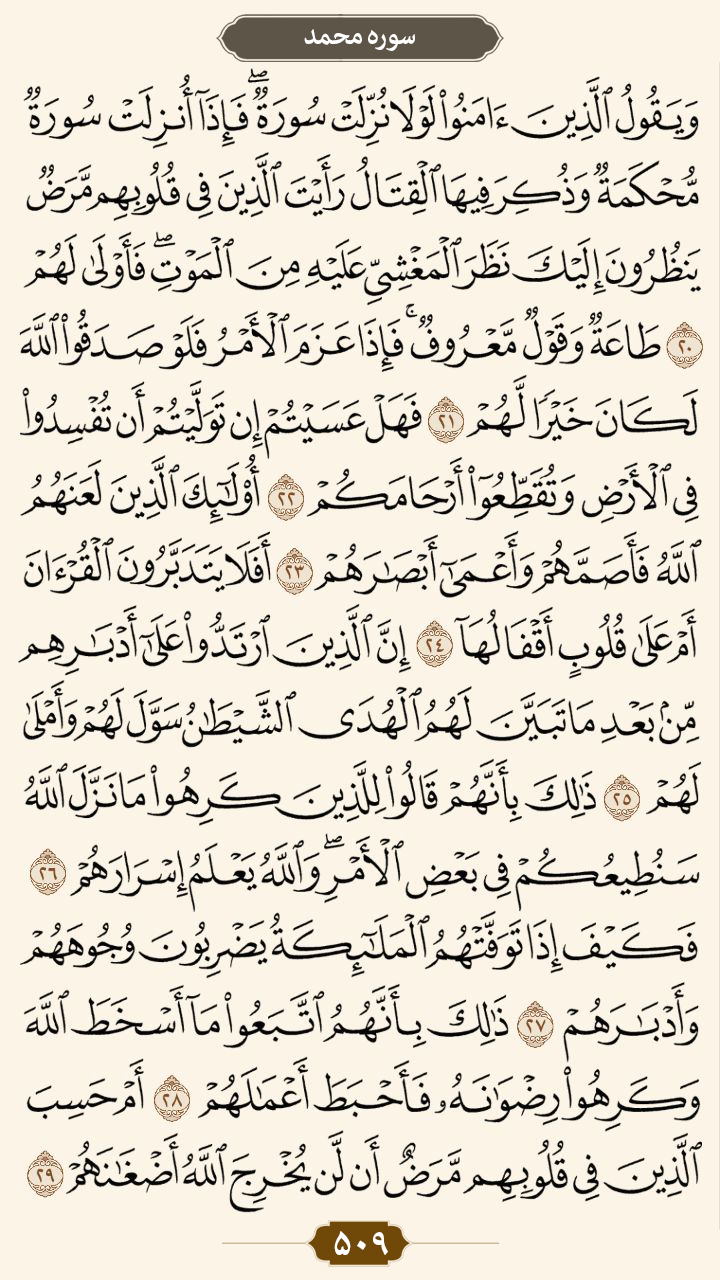 سوره محمد
وَيَقُولُ ٱلَّذِينَ ءَامَنُوا۟ لَوْلَا نُزِّلَتْ سُورَةٌ ۖ فَإِذَآ أُنزِلَتْ سُورَةٌ
مُّحْكَمَةٌ وَذُكِرَ فِيهَا ٱلْقِتَالُ رَأَيْتَ ٱلَّذِينَ فِى قُلُوبِهِم مَّرَضٌ
يَنظُرُونَ إِلَيْكَ نَظَرَ ٱلْمَغْشِىِّ عَلَيْهِ مِنَ ٱلْمَوْتِ ۖ فَأَوْلَىٰ لَهُمْ
٢٠ طَاعَةٌ وَقَوْلٌ مَّعْرُوفٌ ۚ فَإِذَا عَزَمَ ٱلْأَمْرُ فَلَوْ صَدَقُوا۟ ٱللَّهَ
لَكَانَ خَيْرًا لَّهُمْ ٢١ فَهَلْ عَسَيْتُمْ إِن تَوَلَّيْتُمْ أَن تُفْسِدُوا۟
فِى ٱلْأَرْضِ وَتُقَطِّعُوٓا۟ أَرْحَامَكُمْ ٢٢ أُو۟لَٰٓئِكَ ٱلَّذِينَ لَعَنَهُمُ
ٱللَّهُ فَأَصَمَّهُمْ وَأَعْمَىٰٓ أَبْصَٰرَهُمْ ٢٣ أَفَلَا يَتَدَبَّرُونَ ٱلْقُرْءَانَ
أَمْ عَلَىٰ قُلُوبٍ أَقْفَالُهَآ ٢٤ إِنَّ ٱلَّذِينَ ٱرْتَدُّوا۟ عَلَىٰٓ أَدْبَٰرِهِم
مِّنۢ بَعْدِ مَا تَبَيَّنَ لَهُمُ ٱلْهُدَى ٱلشَّيْطَٰنُ سَوَّلَ لَهُمْ وَأَمْلَىٰ
لَهُمْ ٢٥ ذَٰلِكَ بِأَنَّهُمْ قَالُوا۟ لِلَّذِينَ كَرِهُوا۟ مَا نَزَّلَ ٱللَّهُ
سَنُطِيعُكُمْ فِى بَعْضِ ٱلْأَمْرِ ۖ وَٱللَّهُ يَعْلَمُ إِسْرَارَهُمْ ٢٦
فَكَيْفَ إِذَا تَوَفَّتْهُمُ ٱلْمَلَٰٓئِكَةُ يَضْرِبُونَ وُجُوهَهُمْ
وَأَدْبَٰرَهُمْ ٢٧ ذَٰلِكَ بِأَنَّهُمُ ٱتَّبَعُوا۟ مَآ أَسْخَطَ ٱللَّهَ
وَكَرِهُوا۟ رِضْوَٰنَهُۥ فَأَحْبَطَ أَعْمَٰلَهُمْ ٢٨ أَمْ حَسِبَ
ٱلَّذِينَ فِى قُلُوبِهِم مَّرَضٌ أَن لَّن يُخْرِجَ ٱللَّهُ أَضْغَٰنَهُمْ ٢٩
۵۰۹